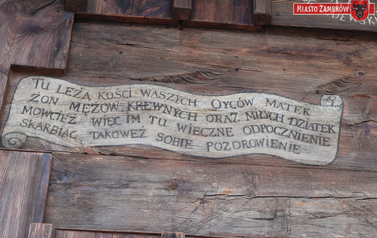 MIASTO ZAMBRÓW
TU LEŻĄ KOŚCI WASZYCH OYCÓW MATEK
ŻON MĘŻÓW KREWNYCH ORAZ MIŁYCH DZIATEK
MÓWCIEŻ WIĘC IM TU WIECZNE ODPOCZNIENIE
SKARBIĄC TAKOWEŻ SOBIE POZDROWIENIE